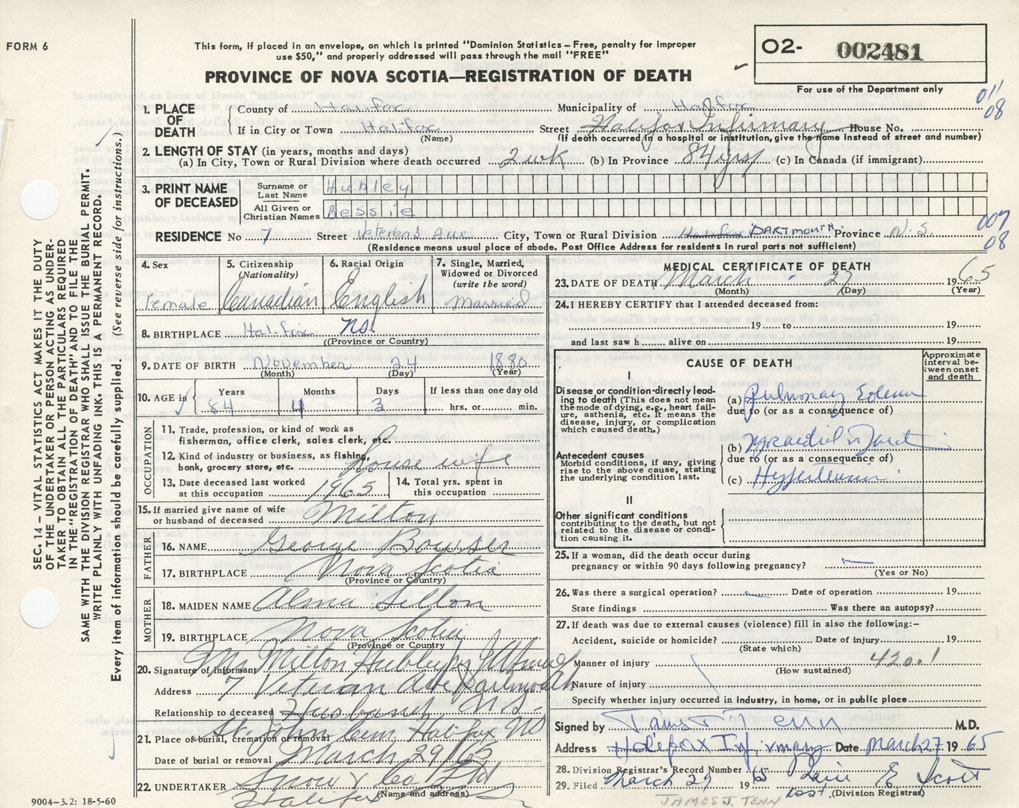 FORM 6
This form, if placed in an envelope, on which is printed "Dominion Statistics – Free, penalty for improper
use $50," and properly addressed will pass through the mail "FREE"
PROVINCE OF NOVA SCOTIA—REGISTRATION OF DEATH
O2- 002481
For use of the Department only
011
08
1. PLACE OF DEATH
County of Halifax Municipality of Halifax
If in City or Town Halifax Street Halifax Infirmary House No.
(Name) (If death occurred in a hospital or institution, give the name instead of street and number)
2. LENGTH OF STAY (in years, months and days)
(a) In City, Town or Rural Division where death occurred 2 wk (b) In Province 84 yrs (c) In Canada (if immigrant)
3. PRINT NAME OF DECEASED
Surname or Last Name Hubley
All Given or Christian Names Bessie
RESIDENCE No 7 Street Veterans Ave City, Town or Rural Division Halifax DARTMOUTH Province N.S.
(Residence means usual place of abode. Post Office Address for residents in rural parts not sufficient)
007
08
4. Sex Female
5. Citizenship (Nationality) Canadian
6. Racial Origin English
7. Single, Married, Widowed or Divorced (write the word) Married
8. BIRTHPLACE Halifax NS
(Province or Country)
9. DATE OF BIRTH November 24 1880
(Month) (Day) (Year)
10. AGE in Years 84 Months 4 Days 3 If less than one day old hrs. or min.
OCCUPATION
11. Trade, profession, or kind of work as
fisherman, office clerk, sales clerk, etc.
12. Kind of industry or business, as fishing,
bank, grocery store, etc. House wife
13. Date deceased last worked
at this occupation 1965
14. Total yrs. spent in
this occupation
15. If married give name of wife
or husband of deceased Milton
FATHER
16. NAME George Bowser
17. BIRTHPLACE Nova Scotia
(Province or Country)
MOTHER
18. MAIDEN NAME Alma
19. BIRTHPLACE Nova Scotia
(Province or Country)
20. Signature of informant Mr Milton Hubley
Address 7 Veteran Ave Dartmouth
Relationship to deceased Husband N.S.
21. Place of burial, cremation or removal St. John Cem Halifax NS
Date of burial or removal March 29/65
22. UNDERTAKER Snow & Co Ltd
Halifax (Name and address)
MEDICAL CERTIFICATE OF DEATH
23. DATE OF DEATH March 27 1965
(Month) (Day) (Year)
24. I HEREBY CERTIFY that I attended deceased from:
19 to 19
and last saw h alive on 19
CAUSE OF DEATH
Approximate interval between onset and death
I
Disease or condition directly leading to death (This does not mean the mode of dying, e.g., heart failure, asthenia, etc. It means the disease, injury, or complication which caused death.)
(a) Pulmonary Edema
due to (or as a consequence of)
Antecedent causes
Morbid conditions, if any, giving rise to the above cause, stating the underlying condition last.
(b) Myocardial Infarct
due to (or as a consequence of)
(c)
II
Other significant conditions
contributing to the death, but not related to the disease or condition causing it.
25. If a woman, did the death occur during
pregnancy or within 90 days following pregnancy?
(Yes or No)
26. Was there a surgical operation? Date of operation 19
State findings Was there an autopsy?
27. If death was due to external causes (violence) fill in also the following:–
Accident, suicide or homicide? Date of injury 19
(State which)
Manner of injury 420.1
(How sustained)
Nature of injury
Specify whether injury occurred in industry, in home, or in public place
Signed by James J. Tenn M.D.
Address Halifax Infirmary Date March 27 1965
28. Division Registrar's Record Number
29. Filed March 29 1965 E Scott
(Division Registrar)
JAMES J. TENN
SEC. 14 – VITAL STATISTICS ACT MAKES IT THE DUTY
OF THE UNDERTAKER OR PERSON ACTING AS UNDER-
TAKER TO OBTAIN ALL THE PARTICULARS REQUIRED
IN THE "REGISTRATION OF DEATH" AND TO FILE THE
SAME WITH THE DIVISION REGISTRAR WHO SHALL ISSUE THE BURIAL PERMIT.
WRITE PLAINLY WITH UNFADING INK. THIS IS A PERMANENT RECORD.
Every item of information should be carefully supplied. (See reverse side for instructions.)
9004–3.2: 18-5-60